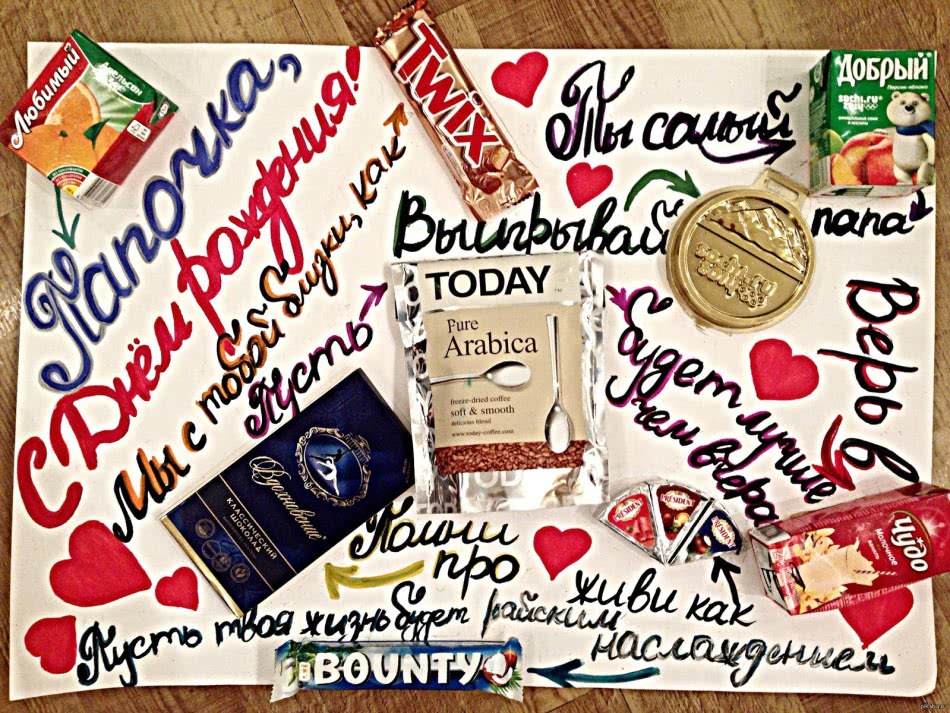 Любимый
Апельсин
Папочка,
С Днём рождения!
Мы с тобой близки, как
TWIX
Ты самый
Добрый
Персик-яблоко
sochi.ru
2014
папа
Выигрывай
Верь в
Чудо
Молочное
Пусть
TODAY
Pure
Arabica
freeze-dried coffee
soft & smooth
delicious blend
www.today-coffee.com
TODAY
будет лучше
чем вчера
Помни
про
Вдохновение
КЛАССИЧЕСКИЙ
ШОКОЛАД
живи как
PRESIDENT
PRESIDENT
PRESIDENT
Пусть твоя жизнь будет райским
наслаждением
BOUNTY